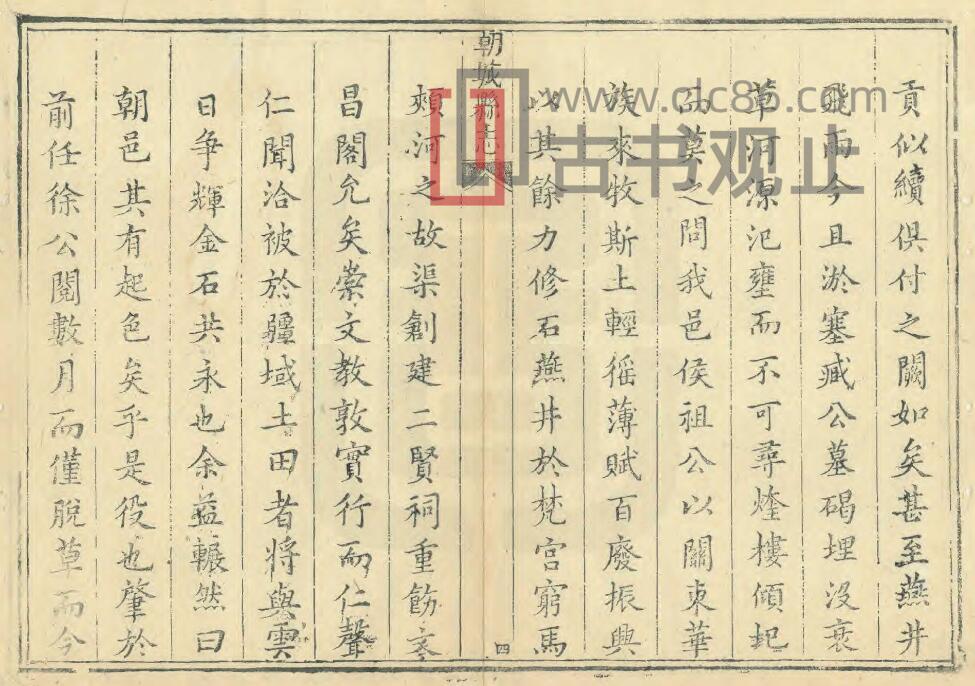 貢似續俱付之闕如矣甚至燕井
飛雨今且淤塞臧公墓碣埋沒衰
草河源氾壅而不可尋烽摟傾圮
而莫之問我邑侯祖公以關東華
族來牧斯土輕徭薄賦百廢振興
以其餘力修石燕井於梵宮窮馬
朝城縣志
四
頰河之故渠創建二賢祠重飭
昌閣允矣崇文教敦實行而仁聲
仁聞洽被於疆域土田者將與雲
日争輝金石共永也余益囅然曰
朝邑其有起色矣乎是役也肇於
前任徐公閱數月而僅脫草而今
www.gc86.com
古书观止